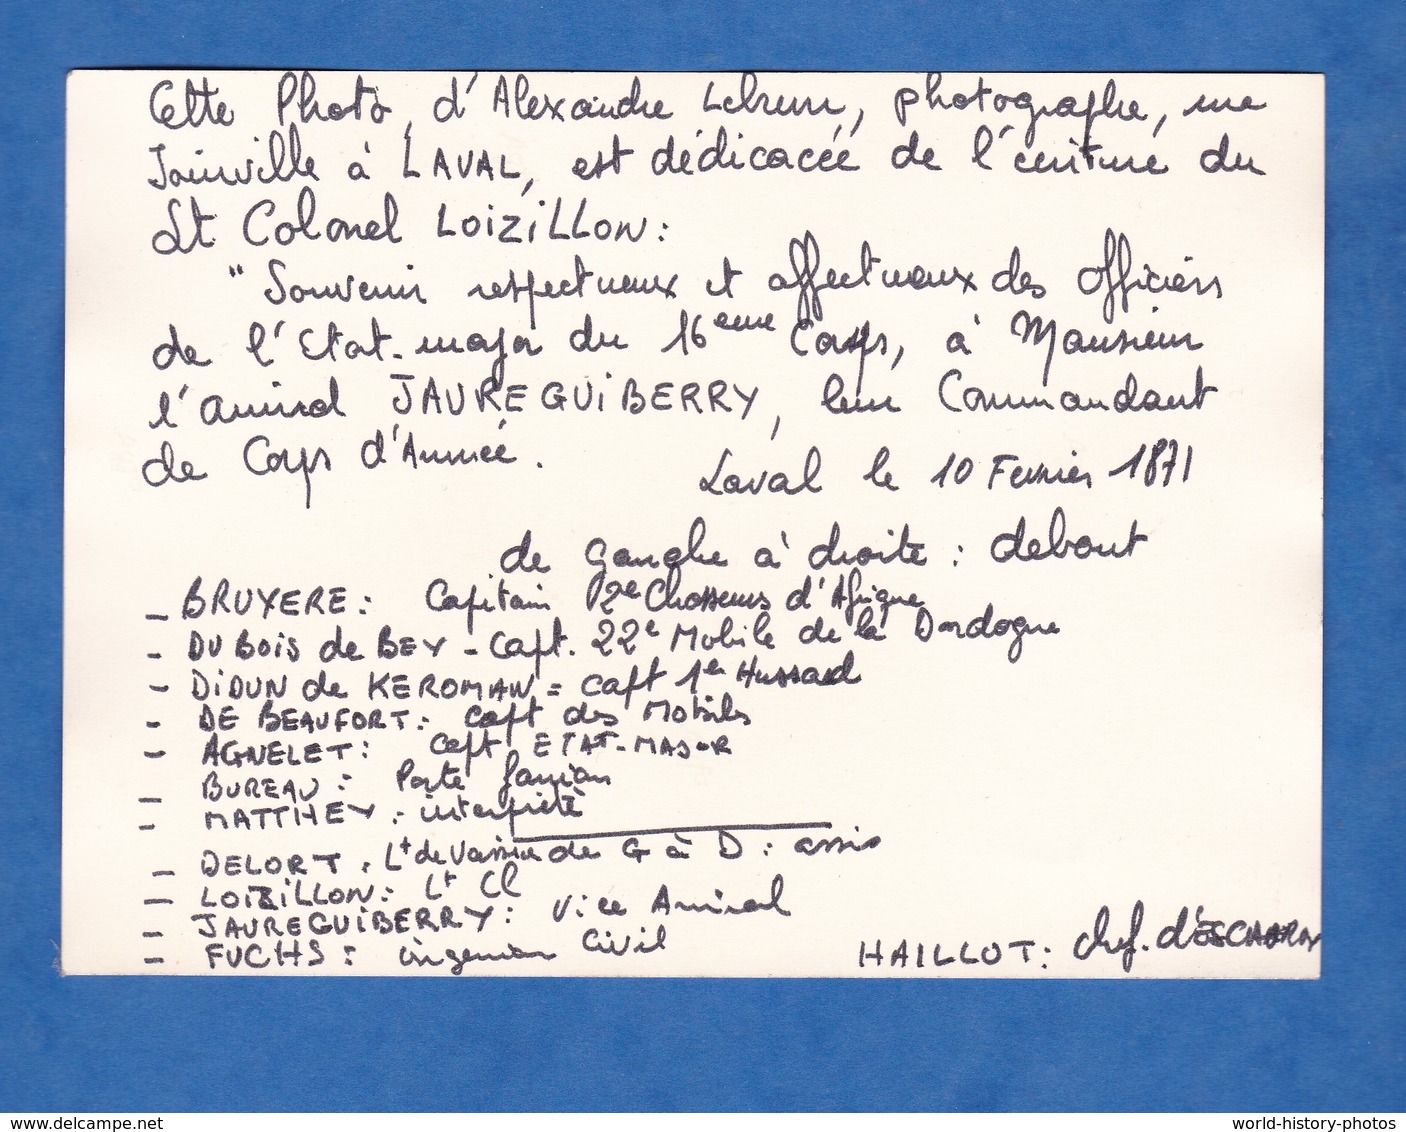 Cette Photo, d'Alexandre Lebrun, photographe, rue
Joinville à LAVAL, est dédicacée de l'écriture du
Lt Colonel LOIZILLON :
"Souvenir respectueux et affectueux des Officiers
de l'Etat-major du 16eme Corps, à Monsieur
l'amiral JAUREGUIBERRY, leur Commandant
de Corps d'Armée.
Laval le 10 Fevrier 1871
de gauche à droite : debout
_ BRUYERE : Capitain 2e Chasseurs d'Afrique
- DU BOIS de BEY - Capt. 22e Mobile de la Dordogne
- DIDUN de KEROMAN = capt 1er Hussard
- DE BEAUFORT : capt des Mobiles
- AGNELET : capt ETAT-MAJOR
- BUREAU : Porte fanion
- MATTHEY : interprète
de G à D : assis
- DELORT . Lt de Vaisseau
- LOIZILLON : Lt Cl
- JAUREGUIBERRY : Vice Amiral
- FUCHS : ingenieur Civil
HAILLOT : chef. d'ESCADRON
www.delcampe.net
world-history-photos